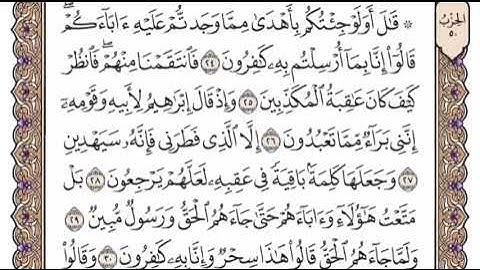 الحزب ٥٠
۞ قَٰلَ أَوَلَوۡ جِئۡتُكُم بِأَهۡدَىٰ مِمَّا وَجَدتُّمۡ عَلَيۡهِ ءَابَآءَكُمۡۖ
قَالُوٓاْ إِنَّا بِمَآ أُرۡسِلۡتُم بِهِۦ كَٰفِرُونَ ٢٤ فَٱنتَقَمۡنَا مِنۡهُمۡۖ فَٱنظُرۡ
كَيۡفَ كَانَ عَٰقِبَةُ ٱلۡمُكَذِّبِينَ ٢٥ وَإِذۡ قَالَ إِبۡرَٰهِيمُ لِأَبِيهِ وَقَوۡمِهِۦٓ
إِنَّنِي بَرَآءٞ مِّمَّا تَعۡبُدُونَ ٢٦ إِلَّا ٱلَّذِي فَطَرَنِي فَإِنَّهُۥ سَيَهۡدِينِ
٢٧ وَجَعَلَهَا كَلِمَةَۢ بَاقِيَةٗ فِي عَقِبِهِۦ لَعَلَّهُمۡ يَرۡجِعُونَ ٢٨ بَلۡ
مَتَّعۡتُ هَٰٓؤُلَآءِ وَءَابَآءَهُمۡ حَتَّىٰ جَآءَهُمُ ٱلۡحَقُّ وَرَسُولٞ مُّبِينٞ ٢٩
وَلَمَّا جَآءَهُمُ ٱلۡحَقُّ قَالُواْ هَٰذَا سِحۡرٞ وَإِنَّا بِهِۦ كَٰفِرُونَ ٣٠ وَقَالُواْ